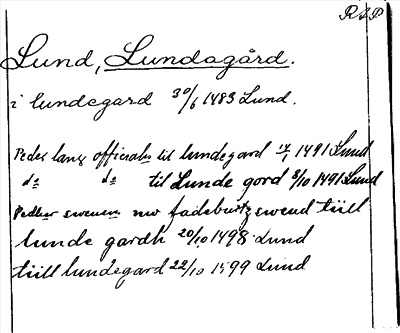 RAP
Lund, Lundagård.
i lundegard 30/6 1483 Lund.
Peder lang officialn til lundegard 17/1 1491 Lund
do do til Lunde gord 8/10 1491 Lund
Pedher swenn nw fadebwrtz swend tiill
lunde gardh 20/10 1498 Lund
tiill lundegard 22/10 1499 Lund